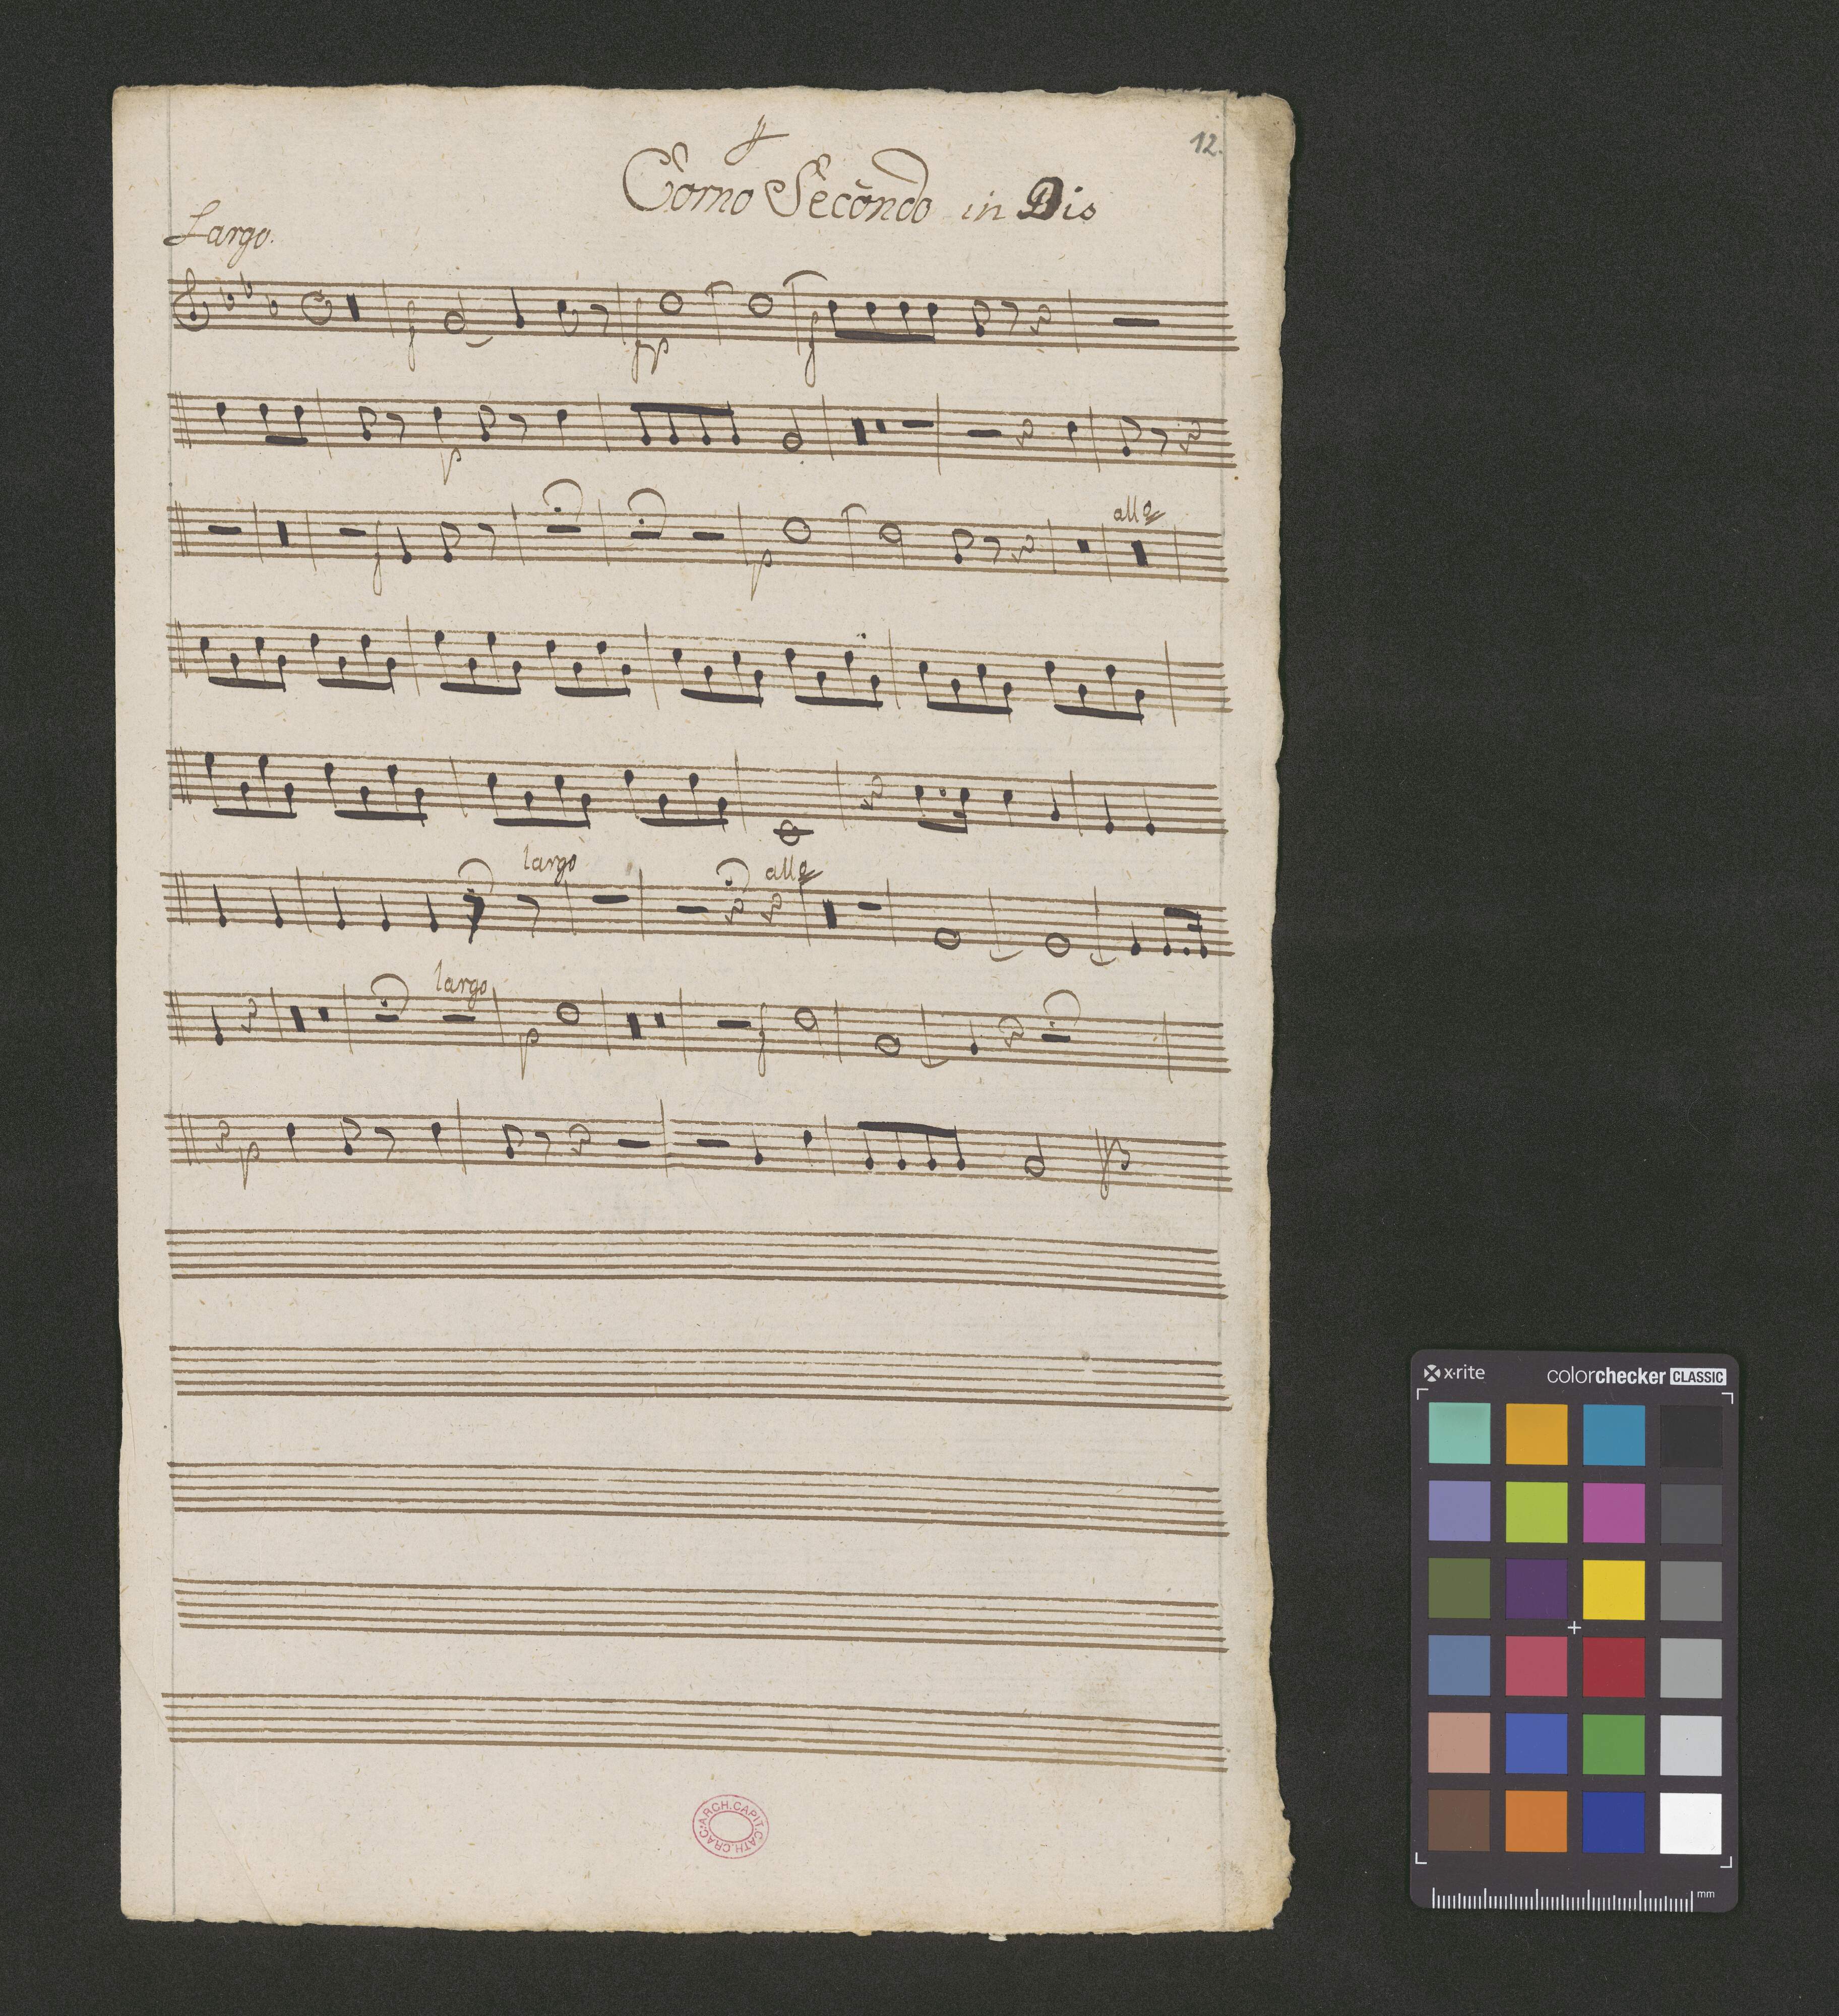 12.
Corno Secondo in Dis
Largo.
f
fp
f
p
f
p
allo
largo
allo
largo
p
f
p
ARCH.CAPIT.CATH.CRAC.
x·rite
colorchecker CLASSIC
mm